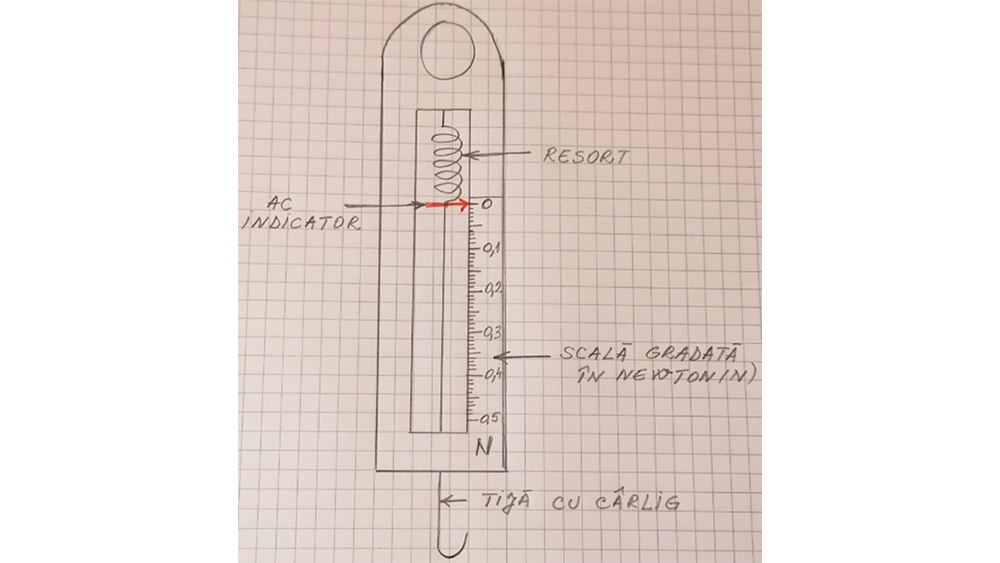 RESORT
AC
INDICATOR
0
0,1
0,2
0,3
SCALĂ GRADATĂ
ÎN NEWTON (N)
0,4
0,5
N
TIJĂ CU CÂRLIG